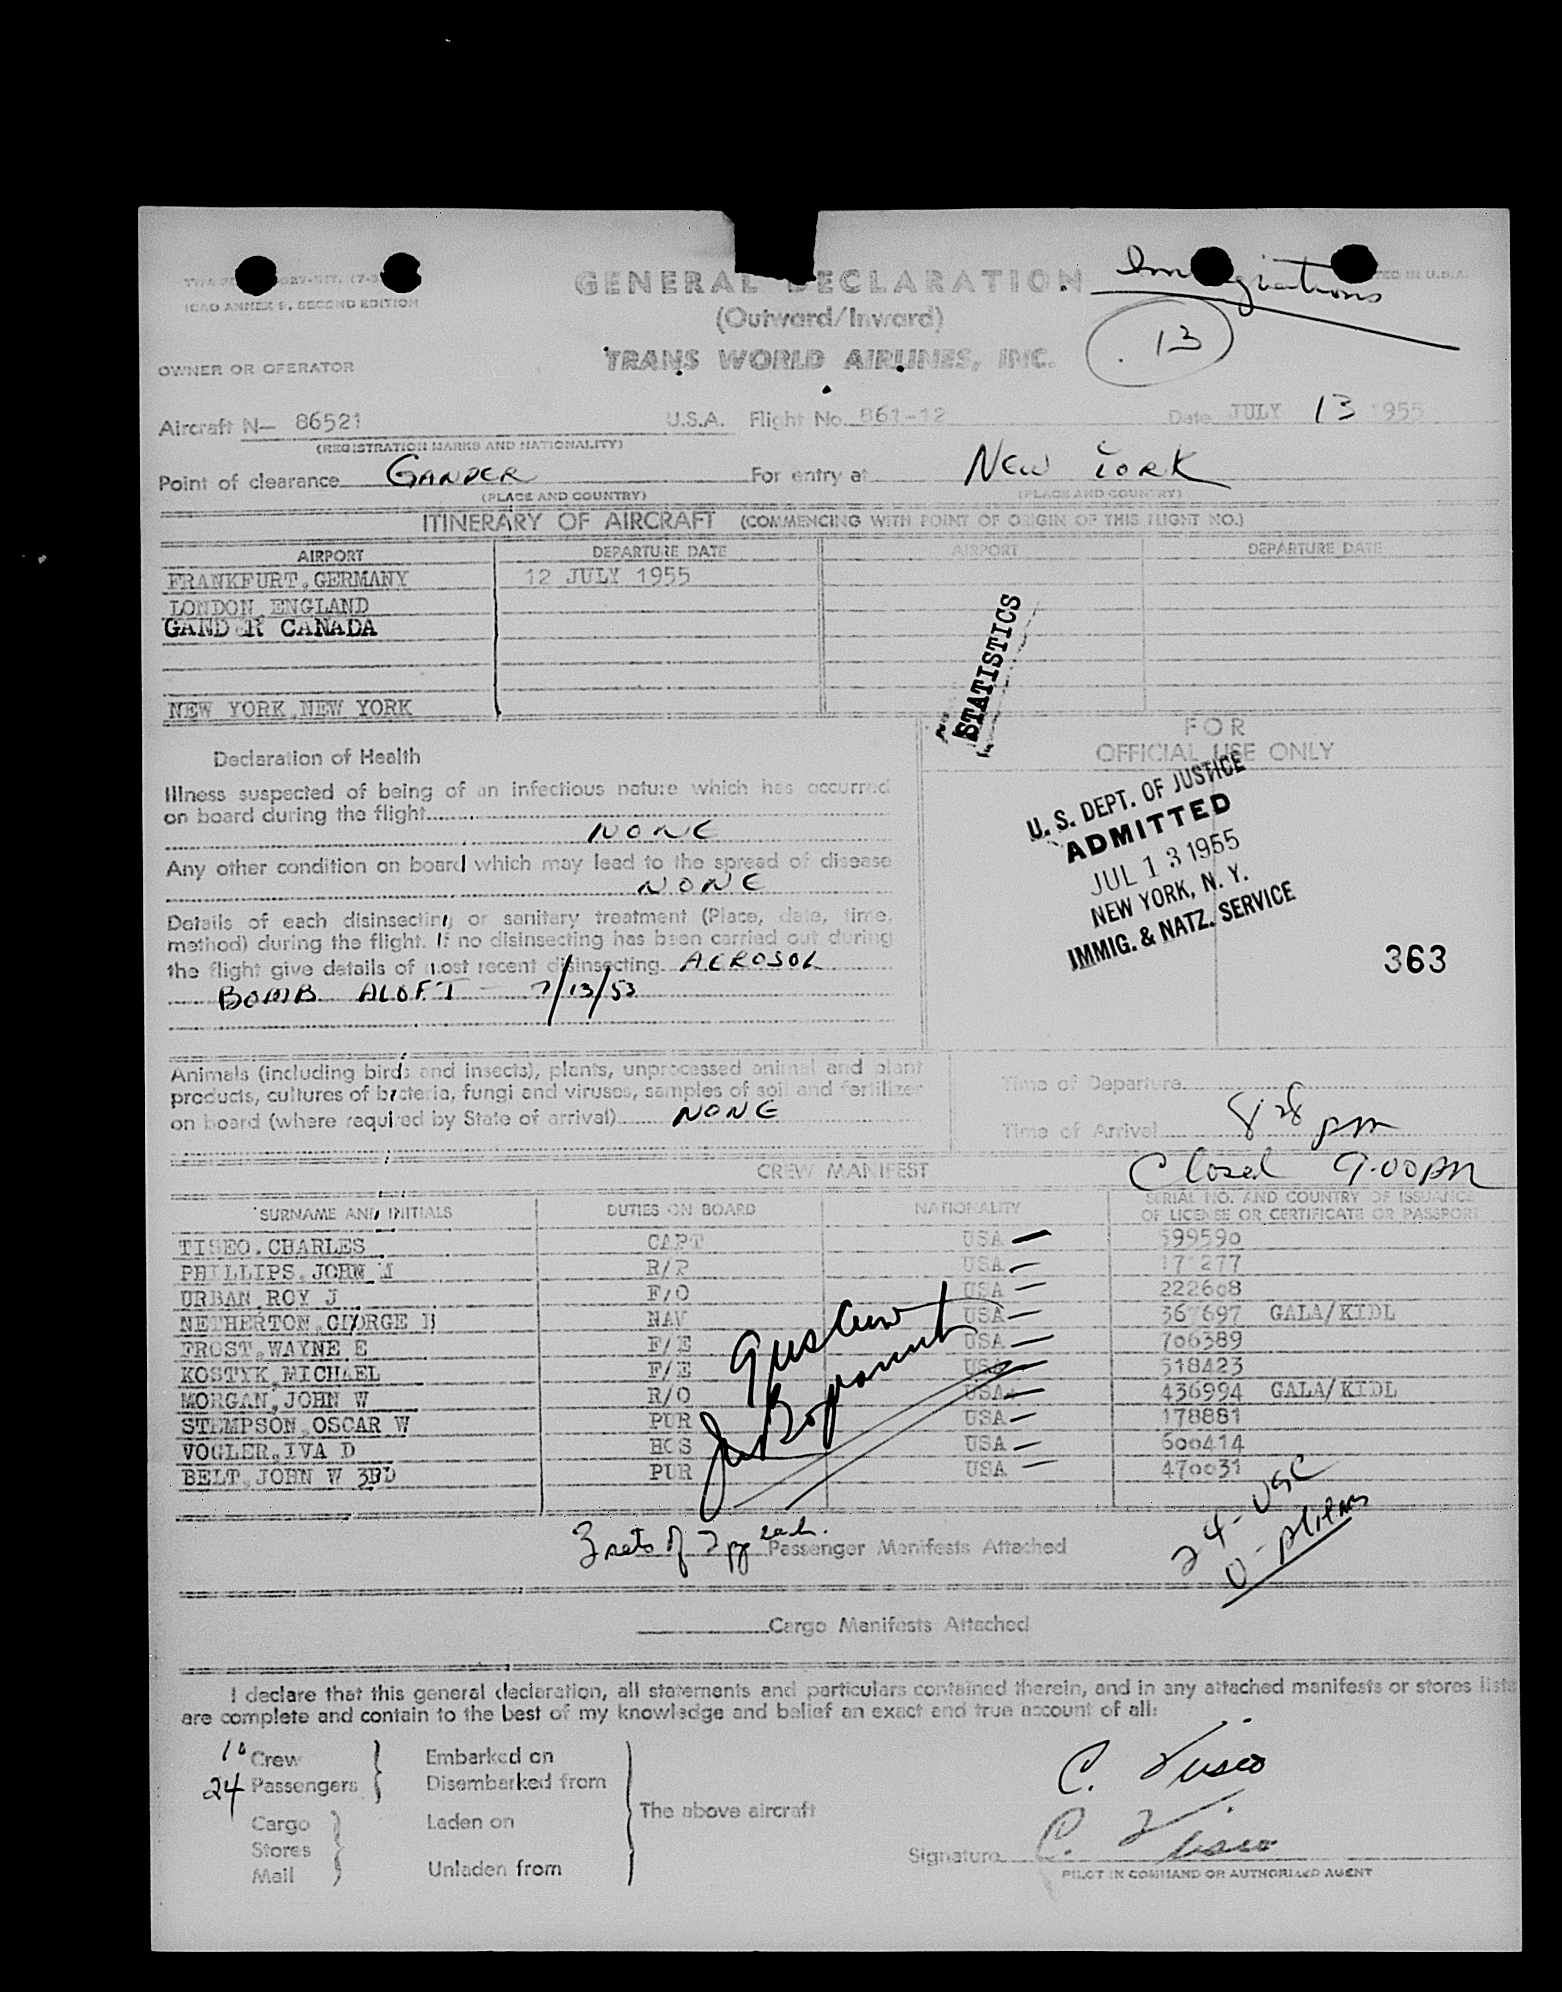 ICAO ANNEX 9, SECOND EDITION
GENERAL DECLARATION
(Outward/Inward)
TRANS WORLD AIRLINES, INC.
13
OWNER OR OPERATOR
Aircraft N— 86521 U.S.A. Flight No. 861-12 Date JULY 13 1955
(REGISTRATION MARKS AND NATIONALITY)
Point of clearance GANDER For entry at NEW YORK
(PLACE AND COUNTRY) (PLACE AND COUNTRY)
ITINERARY OF AIRCRAFT (COMMENCING WITH POINT OF ORIGIN OF THIS FLIGHT NO.)
AIRPORT DEPARTURE DATE AIRPORT DEPARTURE DATE
FRANKFURT, GERMANY 12 JULY 1955
LONDON, ENGLAND
GANDER CANADA
NEW YORK, NEW YORK
STATISTICS
FOR
OFFICIAL USE ONLY
U. S. DEPT. OF JUSTICE
ADMITTED
JUL 13 1955
NEW YORK, N. Y.
IMMIG. & NATZ. SERVICE
363
Declaration of Health
Illness suspected of being of an infectious nature which has occurred
on board during the flight
NONE
Any other condition on board which may lead to the spread of disease
NONE
Details of each disinsecting or sanitary treatment (Place, date, time,
method) during the flight. If no disinsecting has been carried out during
the flight give details of most recent disinsecting AEROSOL
BOMB ALOFT - 7/13/53
Animals (including birds and insects), plants, unprocessed animal and plant
products, cultures of bacteria, fungi and viruses, samples of soil and fertilizer
on board (where required by State of arrival) NONE
Time of Departure
Time of Arrival 828 pm
Closed 9:00 PM
CREW MANIFEST
SURNAME AND INITIALS DUTIES ON BOARD NATIONALITY SERIAL NO. AND COUNTRY OF ISSUANCE
OF LICENSE OR CERTIFICATE OR PASSPORT
TISEO, CHARLES CAPT USA 599590
PHILLIPS, JOHN M R/P USA
URBAN, ROY J F/O USA 222608
NETHERTON, GEORGE H NAV USA GALA/KIDL
FROST, WAYNE E F/E USA 706389
KOSTYK, MICHAEL F/E USA 518423
MORGAN, JOHN W R/O USA 436994 GALA/KIDL
STEMPSON, OSCAR W PUR USA 178881
VOGLER, IVA D HOS USA 600414
BELT, JOHN W 3RD PUR USA 470031
24 - USC
0 - aliens
3 sets of 2 pg each. Passenger Manifests Attached
Cargo Manifests Attached
I declare that this general declaration, all statements and particulars contained therein, and in any attached manifests or stores lists
are complete and contain to the best of my knowledge and belief an exact and true account of all:
10 Crew Embarked on
24 Passengers Disembarked from
The above aircraft
Cargo Laden on
Stores
Mail Unladen from
C. Tiseo
Signature C. Tiseo
PILOT IN COMMAND OR AUTHORIZED AGENT